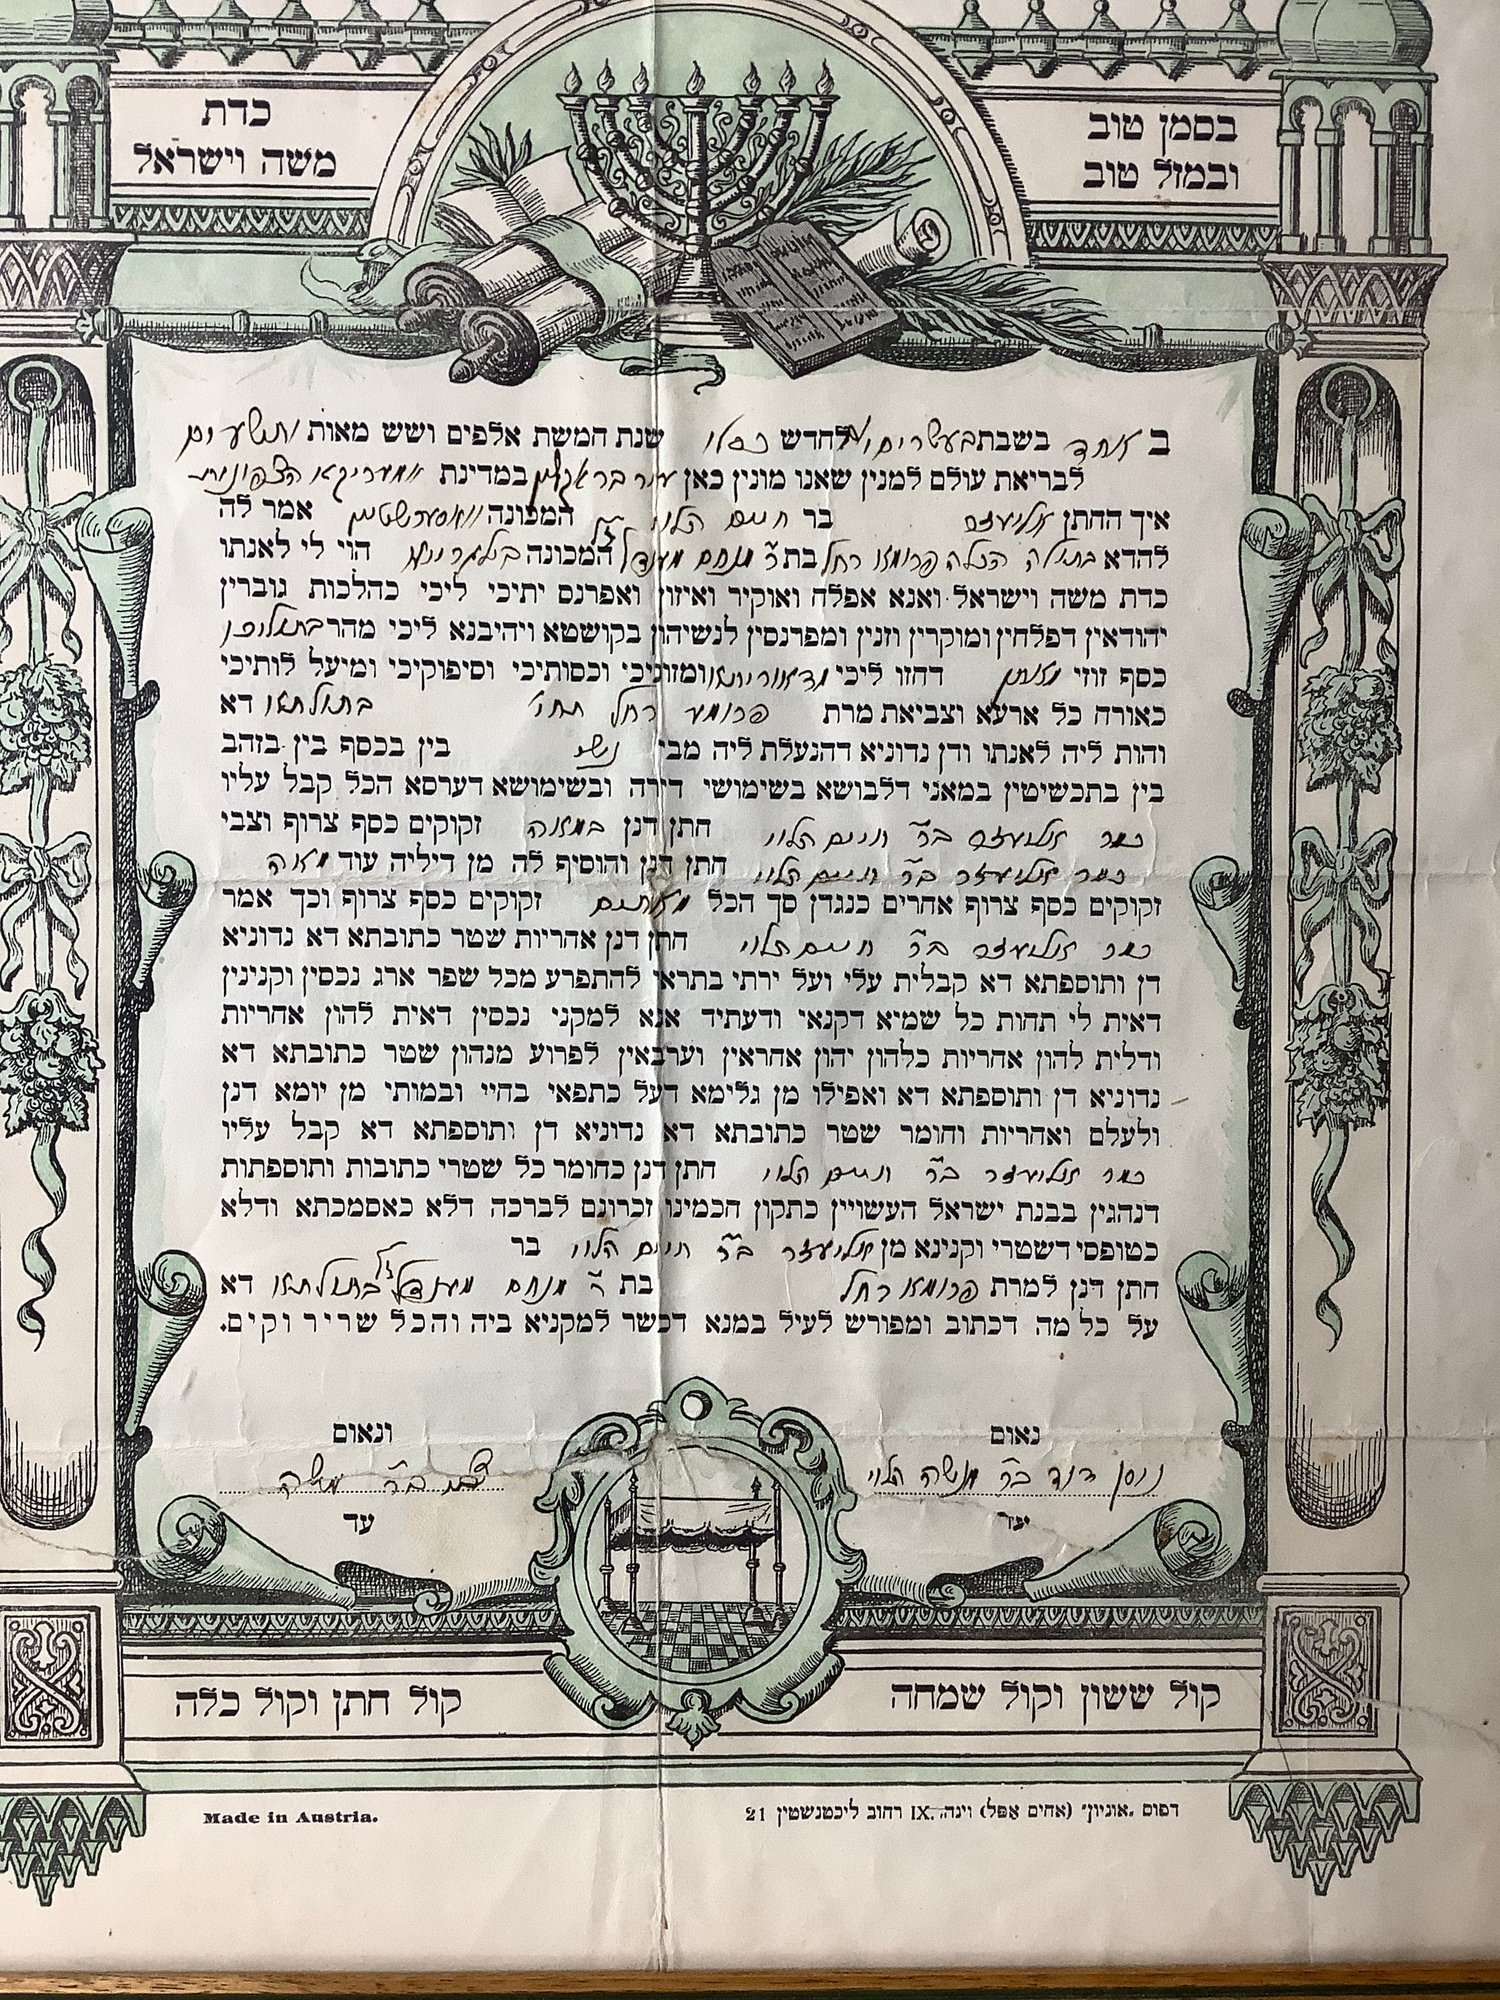 בסמן טוב
ובמזל טוב
כדת
משה וישראל
ב אחד בשבת בעשרים לחדש כסלו שנת חמשת אלפים ושש מאות ותשעים
לבריאת עולם למנין שאנו מונין כאן עיר בראקלין במדינת אמעריקא הצפונית
איך החתן אליעזר בר חיים הלוי המכונה וואסערשטיין אמר לה
להדא בתולה הכלה פרומא רחל בת ר' מנחם מענדל המכונה הוי לי לאנתו
כדת משה וישראל ואנא אפלח ואוקיר ואיזון ואפרנס יתיכי ליכי כהלכות גוברין
יהודאין דפלחין ומוקרין וזנין ומפרנסין לנשיהון בקושטא ויהיבנא ליכי מהר בתוליכי
כסף זוזי מאתן דחזו ליכי מדאורייתא ומזוניכי וכסותיכי וסיפוקיכי ומיעל לותיכי
כאורח כל ארעא וצביאת מרת פרומא רחל תחי' בתולתא דא
והות ליה לאנתו ודן נדוניא דהנעלת ליה מבי נשי בין בכסף בין בזהב
בין בתכשיטין במאני דלבושא בשימושי דירה ובשימושא דערסא הכל קבל עליו
כמר אליעזר ב"ר חיים הלוי חתן דנן במאה זקוקים כסף צרוף וצבי
כמר אליעזר ב"ר חיים הלוי חתן דנן והוסיף לה מן דיליה עוד מאה
זקוקים כסף צרוף אחרים כנגדן סך הכל מאתים זקוקים כסף צרוף וכך אמר
כמר אליעזר ב"ר חיים הלוי חתן דנן אחריות שטר כתובתא דא נדוניא
דן ותוספתא דא קבלית עלי ועל ירתי בתראי להתפרע מכל שפר ארג נכסין וקנינין
דאית לי תחות כל שמיא דקנאי ודעתיד אנא למקני נכסין דאית להון אחריות
ודלית להון אחריות כלהון יהון אחראין וערבאין לפרוע מנהון שטר כתובתא דא
נדוניא דן ותוספתא דא ואפילו מן גלימא דעל כתפאי בחיי ובמותי מן יומא דנן
ולעלם ואחריות וחומר שטר כתובתא דא נדוניא דן ותוספתא דא קבל עליו
כמר אליעזר ב"ר חיים הלוי חתן דנן כחומר כל שטרי כתובות ותוספתות
דנהגין בבנת ישראל העשויין כתקון חכמינו זכרונם לברכה דלא כאסמכתא ודלא
כטופסי דשטרי וקנינא מן אליעזר ב"ר חיים הלוי בר
חתן דנן למרת פרומא רחל בת ר' מנחם מענדל בתולתא דא
על כל מה דכתוב ומפורש לעיל במנא דכשר למקניא ביה והכל שריר וקים.
נאום
ונאום
ניסן דוד ב"ר מנשה הלוי
ב"ר משה
עד
עד
קול ששון וקול שמחה
קול חתן וקול כלה
דפוס „אוניון" (אחים אפל) וינה, IX. רחוב ליכטנשטין 21
Made in Austria.